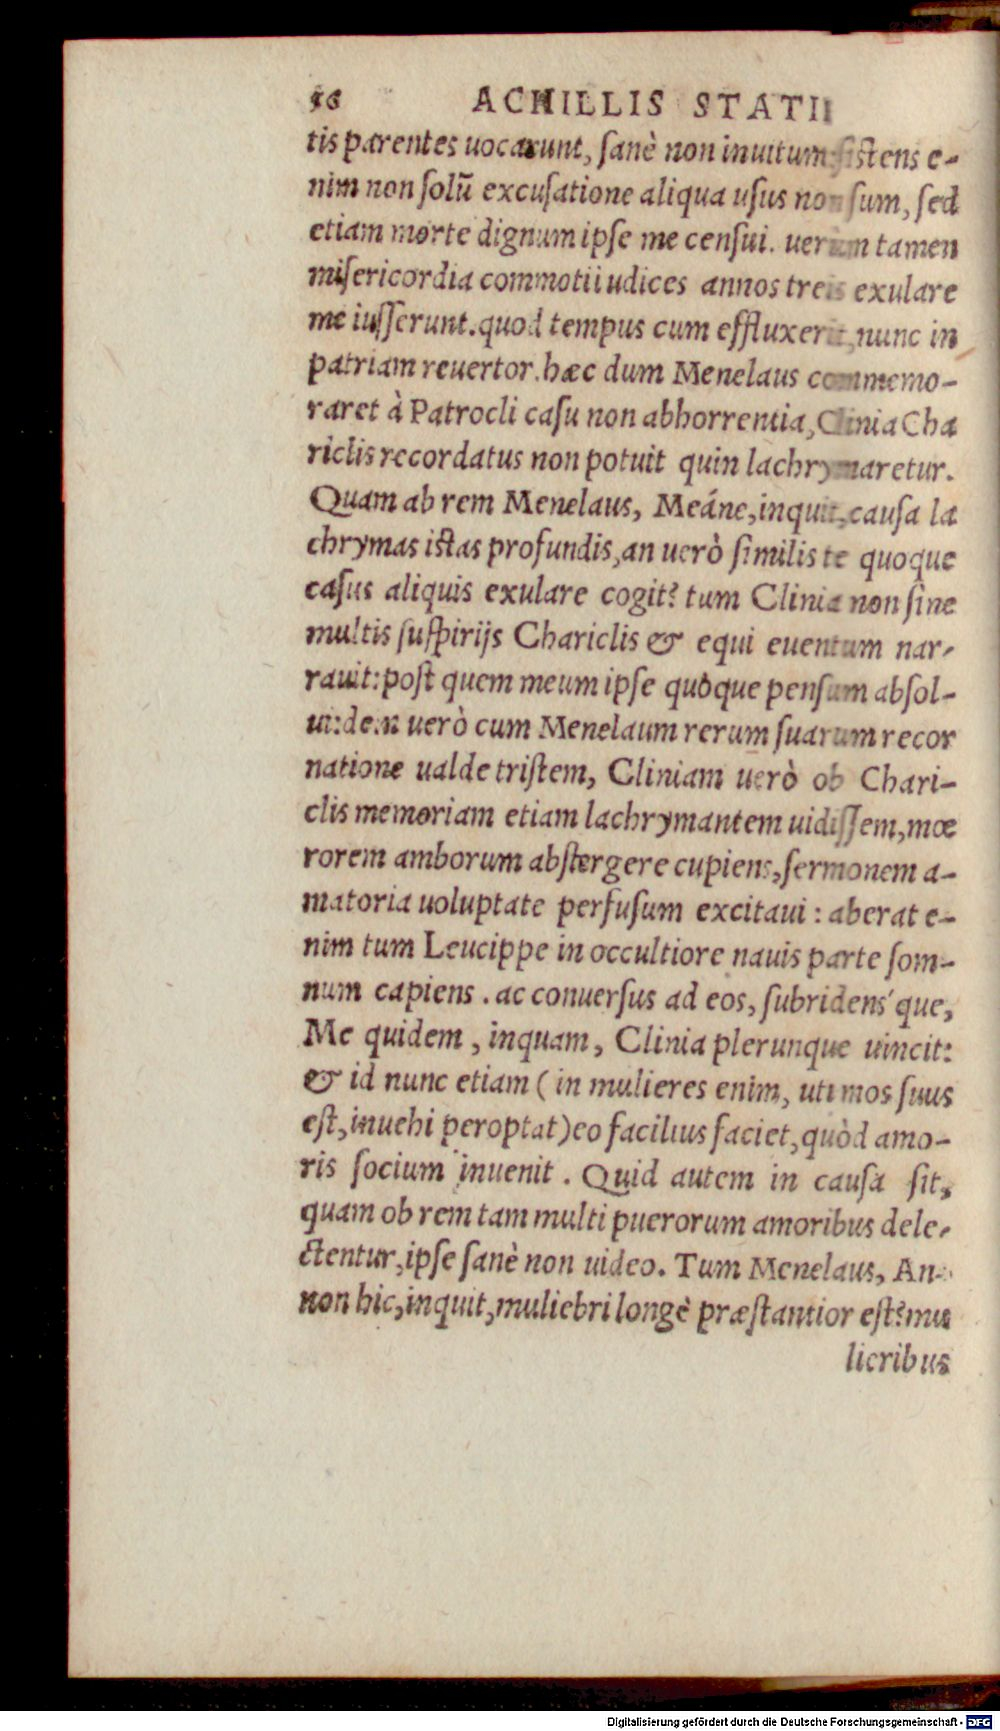 56 ACHILLIS STATII
tis parentes uocarunt, sanè non inuitum: sistens e-
nim non solū excusatione aliqua usus non sum, sed
etiam morte dignum ipse me censui. uerum tamen
misericordia commoti iudices annos treis exulare
me iusserunt. quod tempus cum effluxerit, nunc in
patriam reuertor. hæc dum Menelaus commemo-
raret à Patrocli casu non abhorrentia, Clinia Cha
riclis recordatus non potuit quin lachrymaretur.
Quam ab rem Menelaus, Meáne, inquit, causa la
chrymas istas profundis, an uerò similis te quoque
casus aliquis exulare cogit? tum Clinia non sine
multis suspirijs Chariclis & equi euentum nar-
rauit: post quem meum ipse quoque pensum absol-
ui: dein uerò cum Menelaum rerum suarum recor
natione ualde tristem, Cliniam uerò ob Chari-
clis memoriam etiam lachrymantem uidissem, mœ
rorem amborum abstergere cupiens, sermonem a-
matoria uoluptate perfusum excitaui : aberat e-
nim tum Leucippe in occultiore nauis parte som-
num capiens . ac conuersus ad eos, subridens' que,
Me quidem , inquam , Clinia plerunque uincit:
& id nunc etiam ( in mulieres enim, uti mos suus
est, inuehi peroptat) eo facilius faciet, quòd amo-
ris socium inuenit . Quid autem in causa sit,
quam ob rem tam multi puerorum amoribus dele-
ctentur, ipse sanè non uideo. Tum Menelaus, An-
non hic, inquit, muliebri longè præstantior est? mu
lieribus
Digitalisierung gefördert durch die Deutsche Forschungsgemeinschaft - DFG